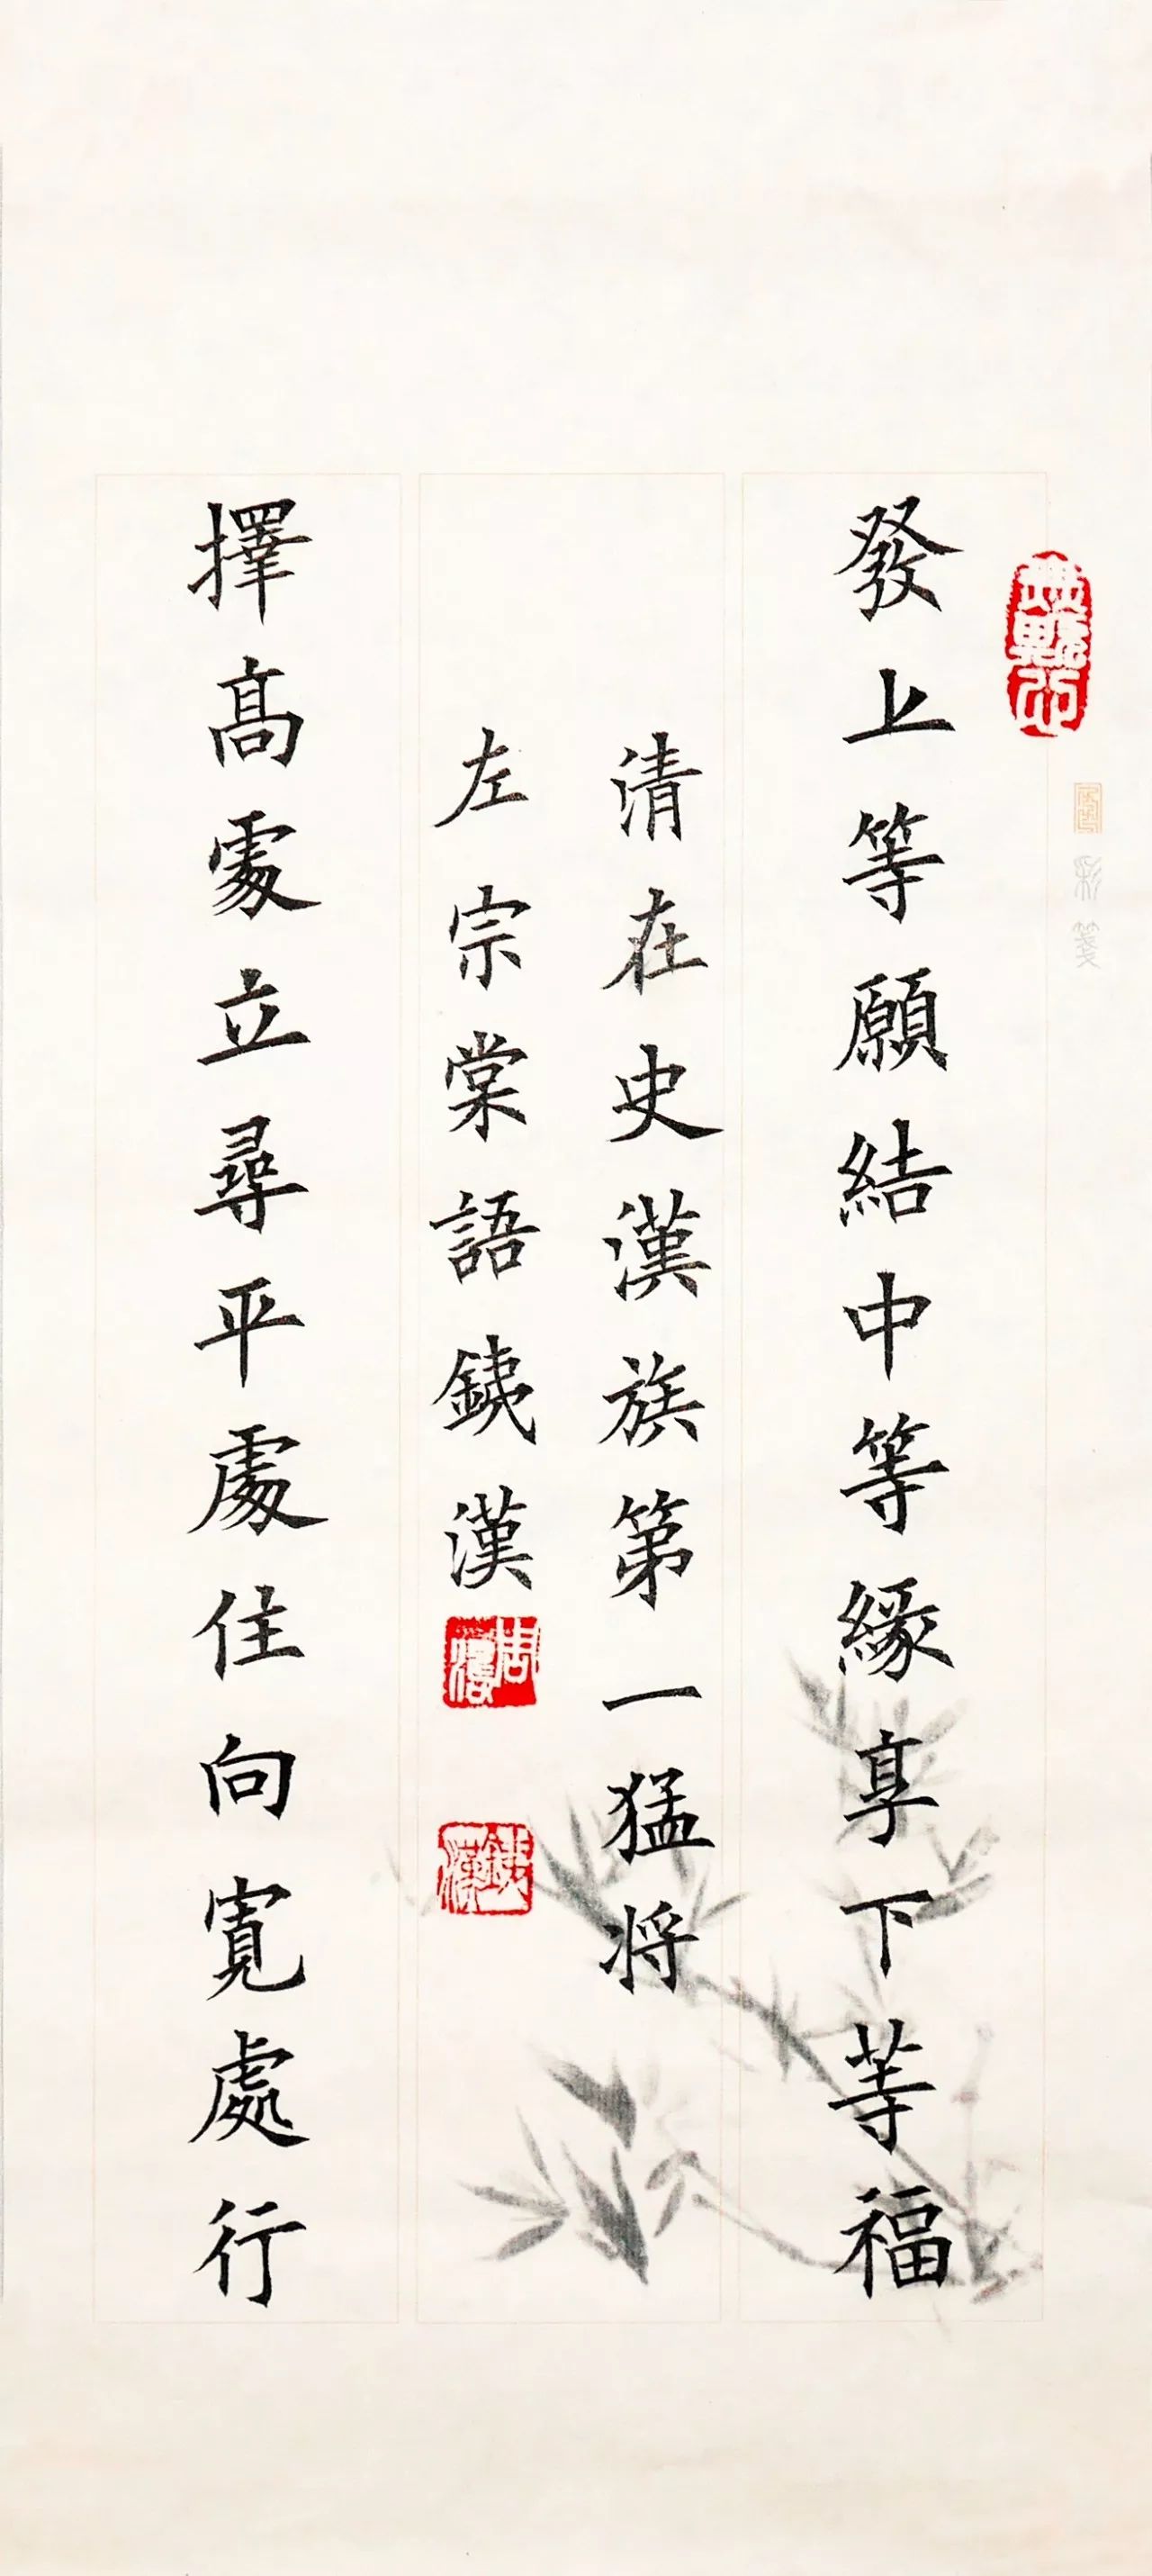 發上等願結中等緣享下等福
無戰心
彩箋
清在史漢族第一猛将
左宗棠語銕漢
周漢
銕漢
擇高處立尋平處住向寬處行